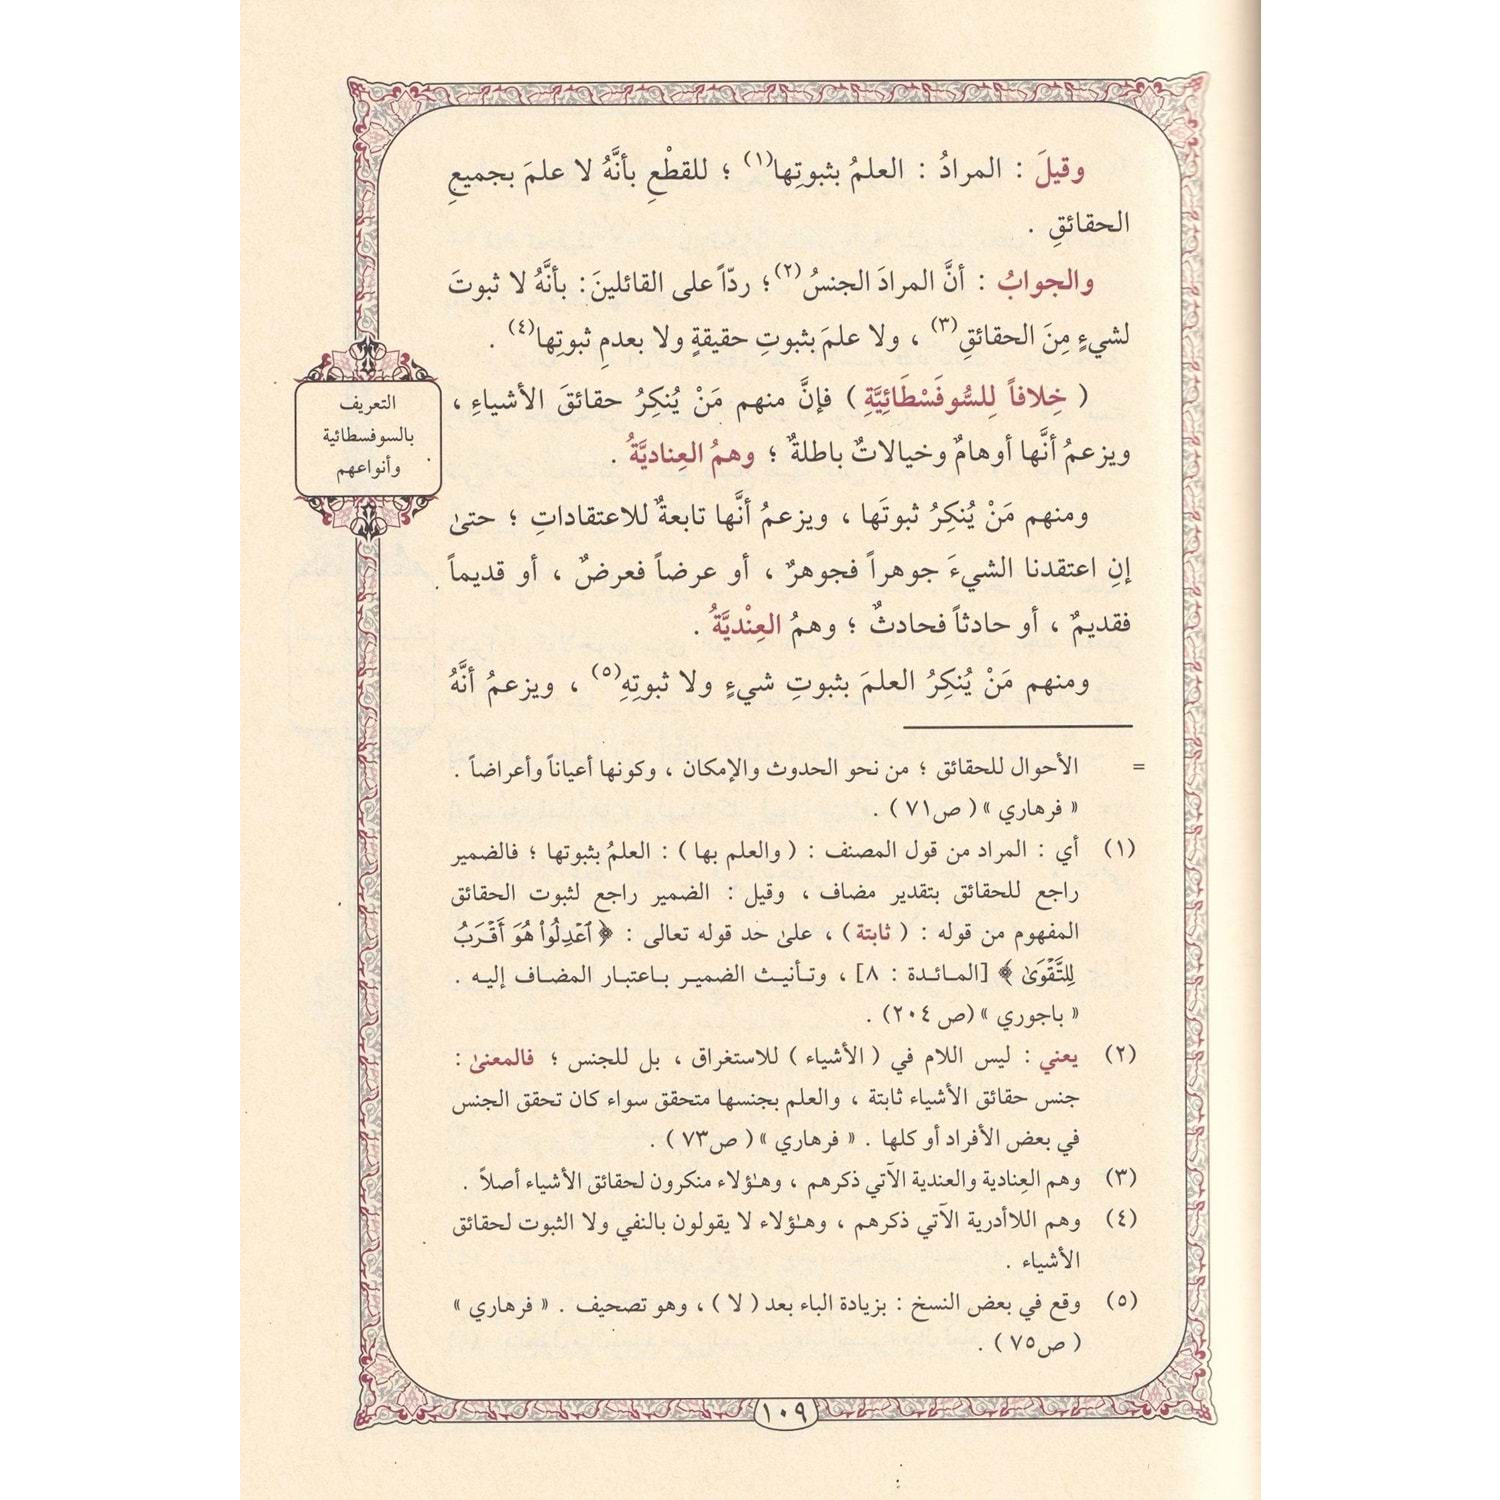 وقيلَ : المرادُ : العلمُ بثبوتِها(١) ؛ للقطْعِ بأنَّهُ لا علمَ بجميعِ
الحقائقِ .
والجوابُ : أنَّ المرادَ الجنسُ(٢)؛ ردّاً على القائلينَ: بأنَّهُ لا ثبوتَ
لشيءٍ مِنَ الحقائقِ(٣) ، ولا علمَ بثبوتِ حقيقةٍ ولا بعدمِ ثبوتِها(٤) .
( خِلافاً لِلسُّوفَسْطَائِيَّةِ ) فإنَّ منهم مَنْ يُنكِرُ حقائقَ الأشياءِ ،
ويزعمُ أنَّها أوهامٌ وخيالاتٌ باطلةٌ ؛ وهمُ العِناديَّةُ .
ومنهم مَنْ يُنكِرُ ثبوتَها ، ويزعمُ أنَّها تابعةٌ للاعتقاداتِ ؛ حتىٰ
إنِ اعتقدنا الشيءَ جوهراً فجوهرٌ ، أو عرضاً فعرضٌ ، أو قديماً
فقديمٌ ، أو حادثاً فحادثٌ ؛ وهمُ العِنْديَّةُ .
ومنهم مَنْ يُنكِرُ العلمَ بثبوتِ شيءٍ ولا ثبوتِهِ(٥) ، ويزعمُ أنَّهُ
التعريف
بالسوفسطائية
وأنواعهم
= الأحوال للحقائق ؛ من نحو الحدوث والإمكان ، وكونها أعياناً وأعراضاً .
« فرهاري » ( ص٧١ ) .
(١) أي : المراد من قول المصنف : ( والعلم بها ) : العلمُ بثبوتها ؛ فالضمير
راجع للحقائق بتقدير مضاف ، وقيل : الضمير راجع لثبوت الحقائق
المفهوم من قوله : ( ثابتة ) ، علىٰ حد قوله تعالى : ﴿ ٱعۡدِلُواْ هُوَ أَقۡرَبُ
لِلتَّقۡوَىٰ ﴾ [المائدة : ٨] ، وتأنيث الضمير باعتبار المضاف إليه .
« باجوري » (ص ٢٠٤) .
(٢) يعني : ليس اللام في ( الأشياء ) للاستغراق ، بل للجنس ؛ فالمعنىٰ :
جنس حقائق الأشياء ثابتة ، والعلم بجنسها متحقق سواء كان تحقق الجنس
في بعض الأفراد أو كلها . « فرهاري » ( ص٧٣ ) .
(٣) وهم العِنادية والعندية الآتي ذكرهم ، وهـٰؤلاء منكرون لحقائق الأشياء أصلاً .
(٤) وهم اللاأدرية الآتي ذكرهم ، وهـٰؤلاء لا يقولون بالنفي ولا الثبوت لحقائق
الأشياء .
(٥) وقع في بعض النسخ : بزيادة الباء بعد ( لا ) ، وهو تصحيف . « فرهاري »
( ص٧٥ ) .
١٠٩